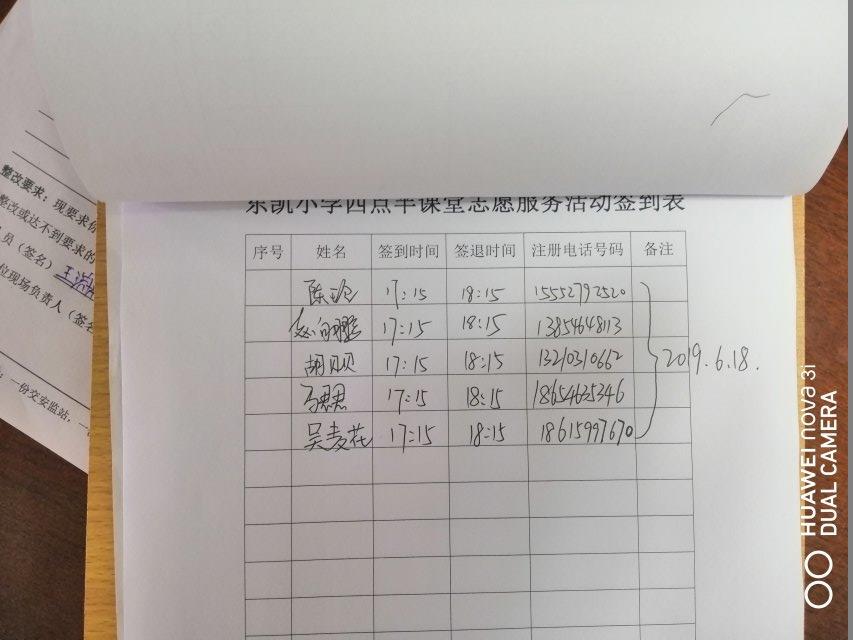 整改要求：现要求你
整改或达不到要求的
员（签名）
位现场负责人（签名
一份交安监站，一
东凯小学四点半课堂志愿服务活动签到表
序号 姓名 签到时间 签退时间 注册电话号码 备注
陈 17:15 18:15 15552792520
17:15 18:15 13854648113
胡贝贝 17:15 18:15 13210310662
马君君 17:15 18:15 18654625346
吴麦花 17:15 18:15 18615997670
2019.6.18.
HUAWEI nova 3i
DUAL CAMERA